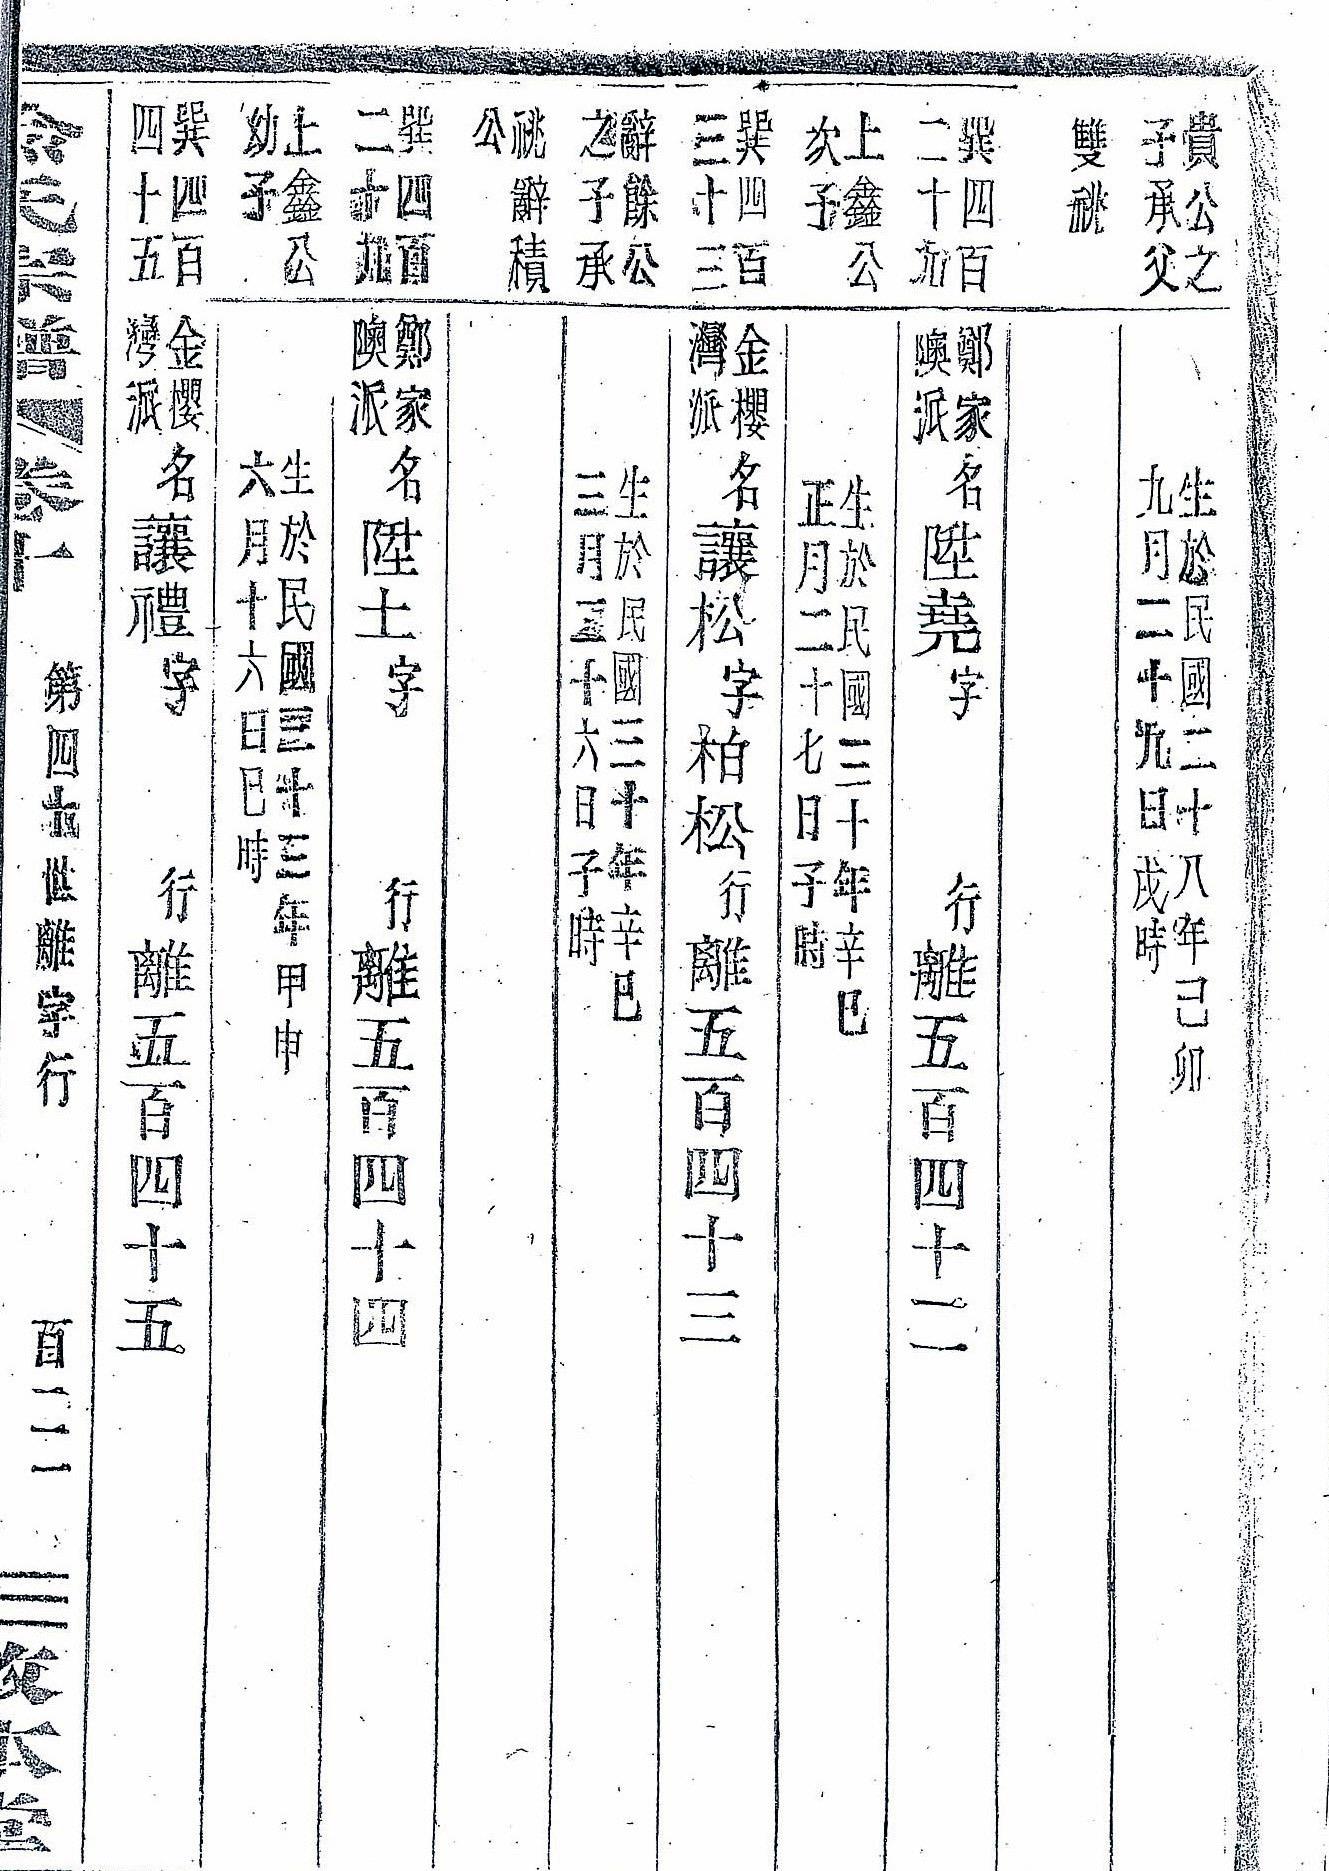 貴公之
子承父
雙祧
生於民國二十八年己卯
九月二十九日戌時
巽四百
二十九
鄭家
陳派
名陞堯字 行離五百四十二
上鑫公
次子
生於民國三十年辛巳
正月二十七日子時
巽四百
三十三
金櫻
灣派
名讓松字柏松行離五百四十三
辭餘公
之子承
生於民國三十年辛巳
三月二十六日子時
祧辭積
公
巽四百
二十九
鄭家
陳派
名陞土字 行離五百四十四
上鑫公
幼子
生於民國三十三年甲申
六月十六日巳時
巽四百
四十五
金櫻
灣派
名讓禮字 行離五百四十五
宗譜 卷十
第四十世離字行
百二二
三 本堂